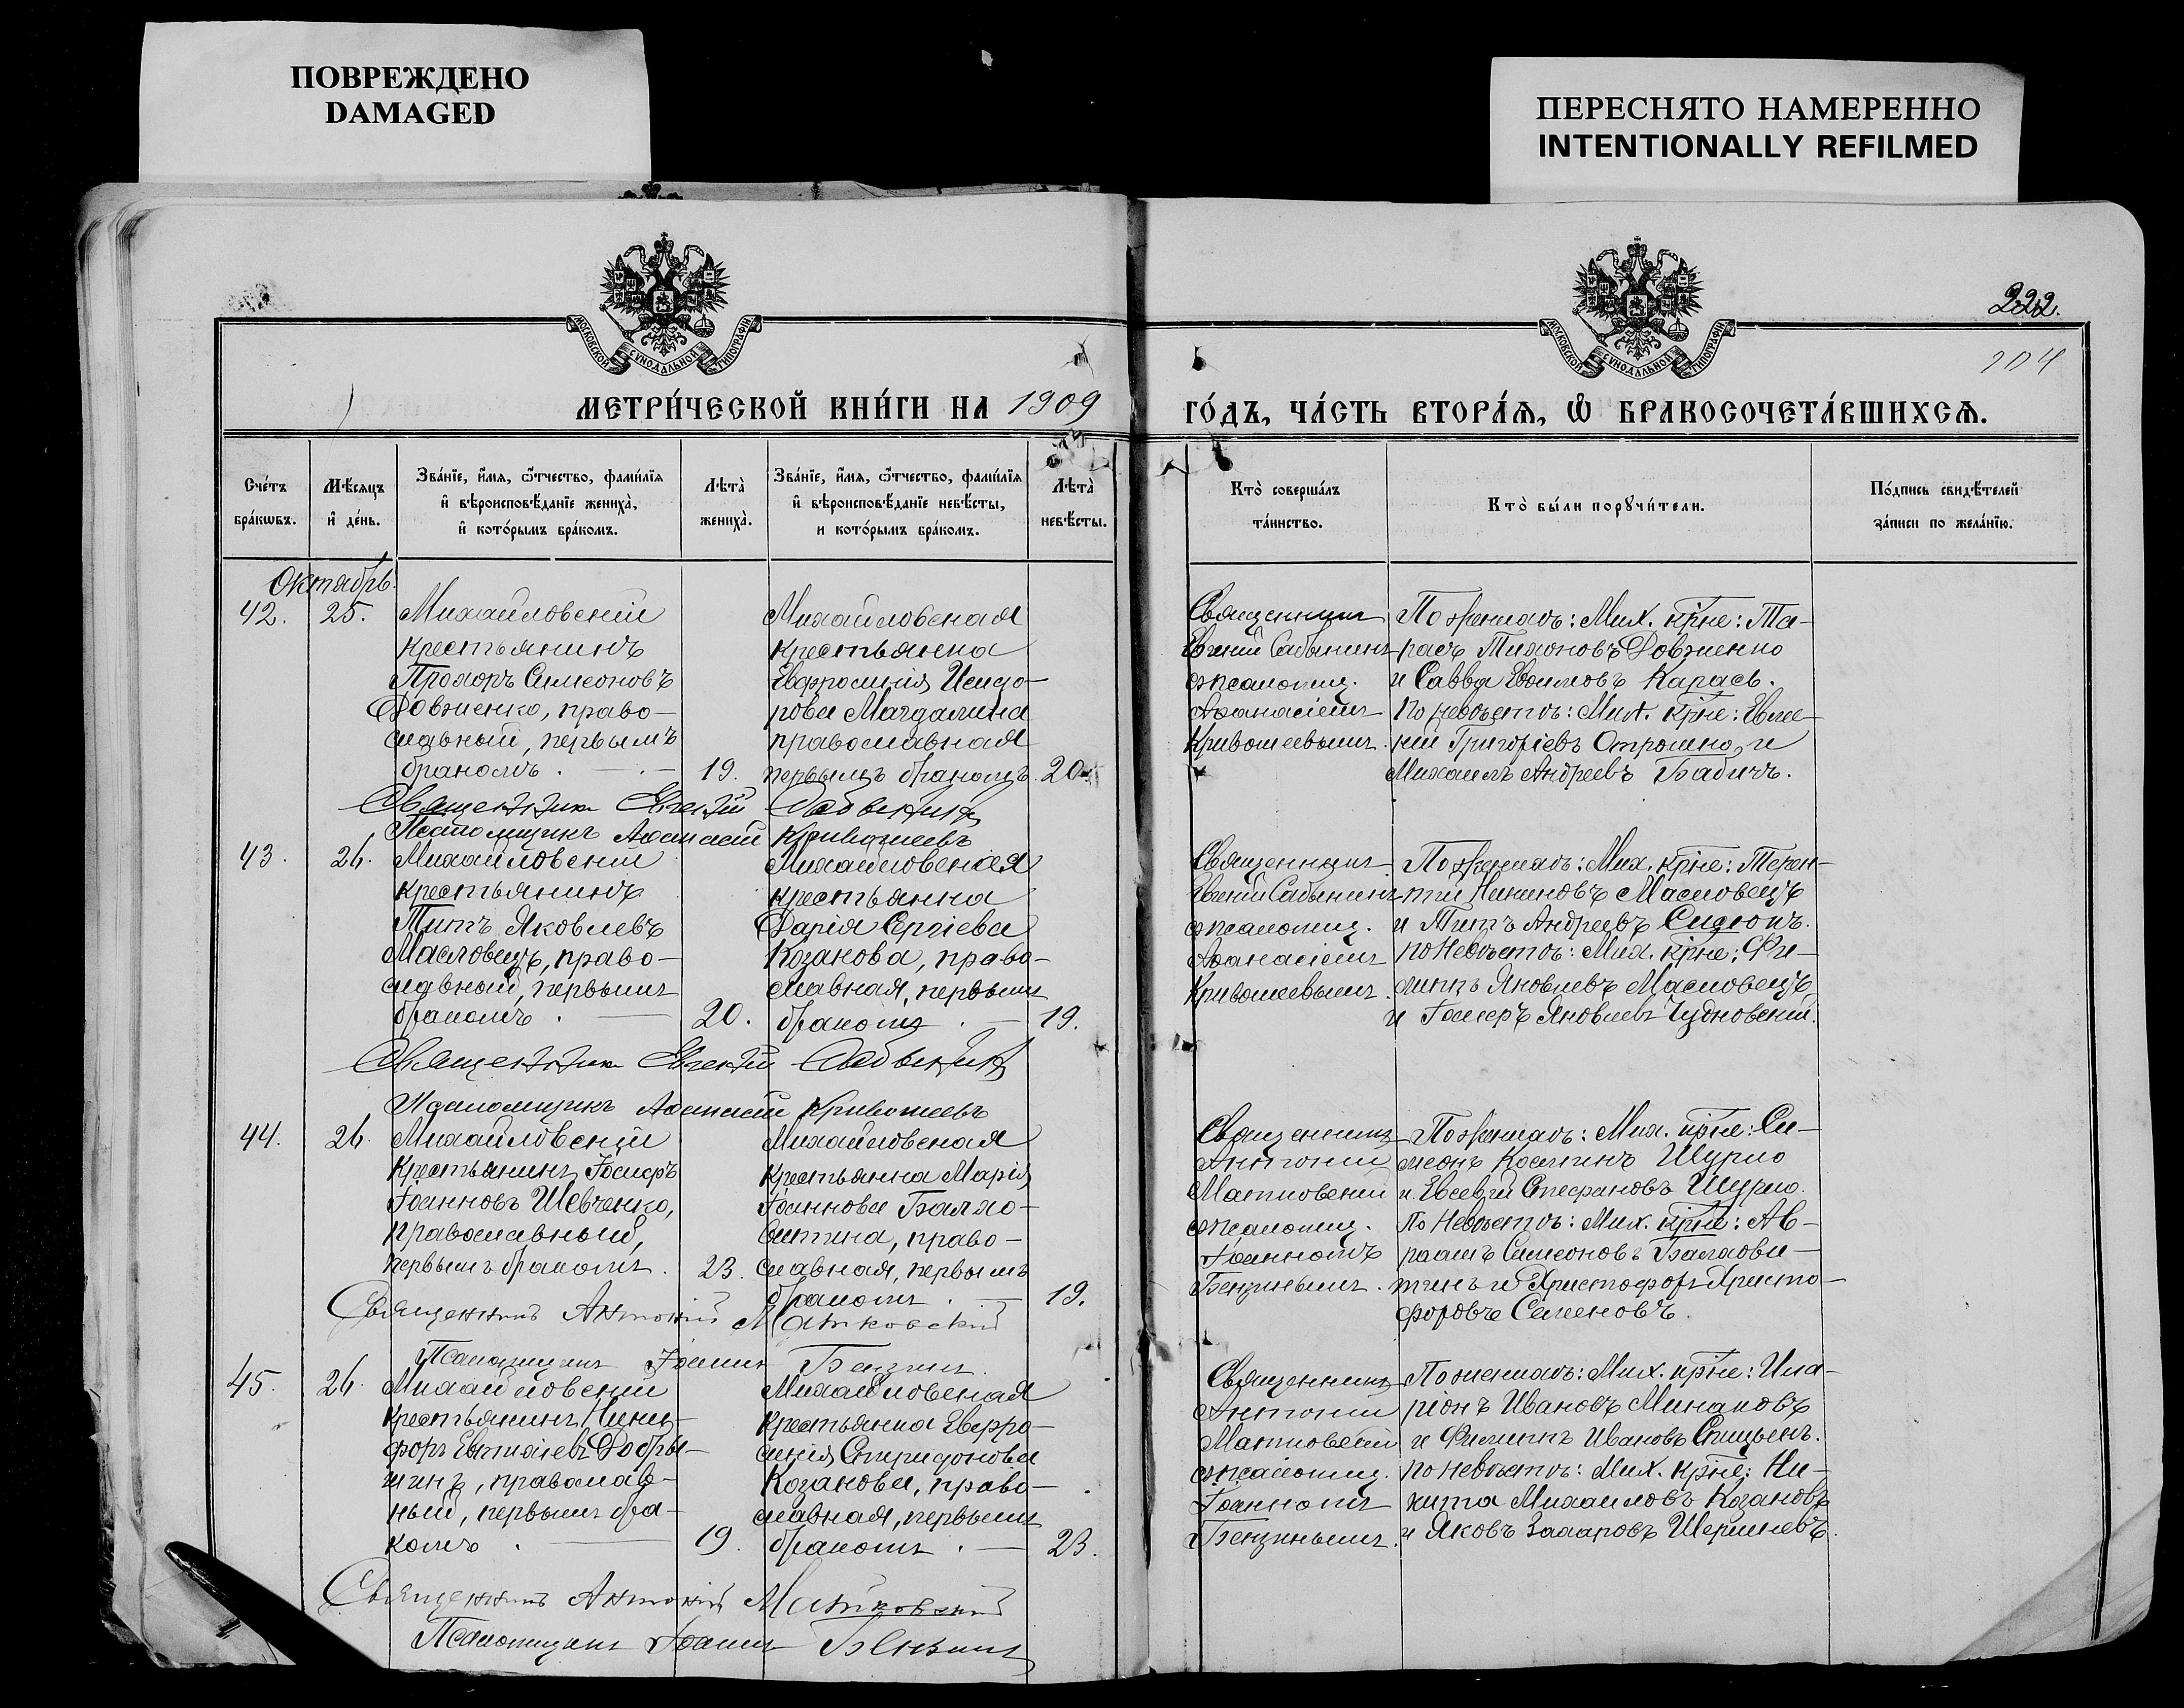 ПОВРЕЖДЕНО
DAMAGED
ПЕРЕСНЯТО НАМЕРЕННО
INTENTIONALLY REFILMED
МОСКОВСКОЙ СѴНОДАЛЬНОЙ ТИПОГРАФІИ
МОСКОВСКОЙ СѴНОДАЛЬНОЙ ТИПОГРАФІИ
222.
204
МЕТРИ́ЧЕСКОЙ КНИ́ГИ НА 1909
ГО́ДЪ, ЧА́СТЬ ВТОРА́Ѧ, Ѡ҆ БРАКОСОЧЕТА́ВШИХСѦ.
Сче́тъ
бра́кѡвъ.
Мѣ́сяцъ
и҆ де́нь.
Зва́нїе, и҆́мя, ѻ҆́тчество, фами́лїя
и҆ вѣроисповѣ́данїе жениха̀,
и҆ кото́рымъ бра́комъ.
Лѣ́та̀
жениха̀.
Зва́нїе, и҆́мя, ѻ҆́тчество, фами́лїя
и҆ вѣроисповѣ́данїе невѣ́сты,
и кото́рымъ бра́комъ.
Лѣ́та̀
невѣ́сты.
Кто̀ соверша́лъ
та́инство.
Кто̀ бы́ли порꙋчи́тели.
По́дпись свидѣ́телей
за́писи по жела́нїю.
Октябрь.
42.
25.
Михайловскій
крестьянинъ
Прохоръ Симеоновъ
Довженко, право-
славный, первымъ
бракомъ.
19.
Михайловская
крестьянка
Евфросинія Исидо-
рова Магдалина
православная
первымъ бракомъ.
20.
Священникъ
Евгеній Сабынинъ
съ псаломщ.
Аѳанасіемъ
Кривошеевымъ.
По женихѣ: Мих. крне: Та-
расъ Тихоновъ Довженко
и Савва Евѳимовъ Карась.
По невѣстѣ: Мих. крне: Евге-
ній Григоріевъ Отрошко, и
Михаилъ Андреевъ Бабичъ.
Священникъ Евгеній Сабынинъ
Псаломщикъ Аѳанасій Кривошеевъ
43.
26.
Михайловскій
крестьянинъ
Титъ Яковлевъ
Масловецъ, право-
славный, первымъ
бракомъ.
20.
Михайловская
крестьянка
Дарія Сергіева
Козакова, право-
славная, первымъ
бракомъ.
19.
Священникъ
Евгеній Сабынинъ
съ псаломщ.
Аѳанасіемъ
Кривошеевымъ.
По женихѣ: Мих. крне: Терен-
тій Никиновъ Масловецъ
и Титъ Андреевъ Сидюкъ.
По невѣстѣ: Мих. крне: Фи-
липпъ Яковлевъ Масловецъ
и Іосифъ Яковлевъ Чудновскій.
Священникъ Евгеній Сабынинъ
Псаломщикъ Аѳанасій Кривошеевъ
44.
26.
Михайловскій
крестьянинъ Іосифъ
Іоанновъ Шевченко,
православный,
первымъ бракомъ.
23.
Михайловская
крестьянка Марія
Іоаннова Балхо-
витина, право-
славная, первымъ
бракомъ.
19.
Священникъ
Антоній
Матковскій
съ псаломщ.
Іоанномъ
Бензинымъ.
По женихѣ: Мих. крне: Си-
меонъ Косминъ Шурло
и Евсевій Стефановъ Шурло.
По невѣстѣ: Мих. крне: Ав-
раамъ Симеоновъ Балхови-
тинъ и Христофоръ Христо-
форовъ Семеновъ.
Священникъ Антоній Матковскій
Псаломщикъ Іоаннъ Бензинъ
45.
26.
Михайловскій
крестьянинъ Ники-
форъ Евтихіевъ Добры-
жинъ, православ-
ный, первымъ бра-
комъ.
19.
Михайловская
крестьянка Евфро-
синія Спиридонова
Козакова, право-
славная, первымъ
бракомъ.
23.
Священникъ
Антоній
Матковскій
съ псаломщ.
Іоанномъ
Бензинымъ.
По женихѣ: Мих. крне: Ила-
ріонъ Ивановъ Минаковъ
и Филиппъ Ивановъ Спицынъ.
По невѣстѣ: Мих. крне: Ни-
кита Михаиловъ Козаковъ
и Яковъ Захаровъ Шершневъ.
Священникъ Антоній Матковскій
Псаломщикъ Іоаннъ Бензинъ